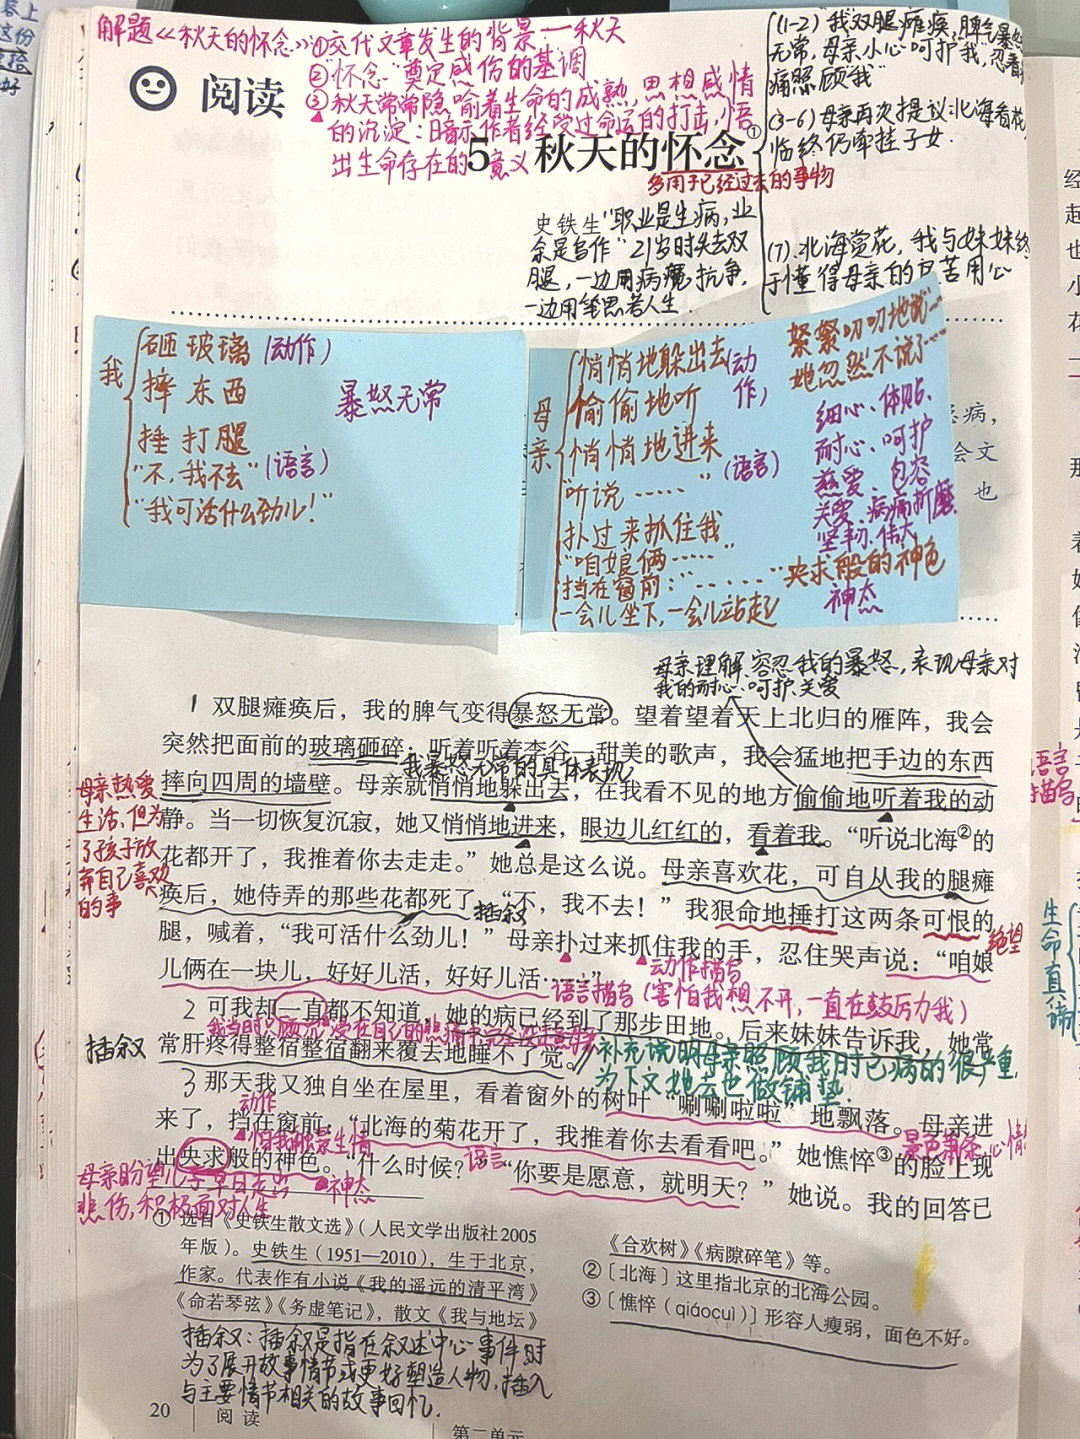 解题《秋天的怀念》①交代文章发生的背景——秋天
②"怀念"奠定感伤的基调
③秋天常常隐喻着生命的成熟,思想感情
的沉淀:暗示作者经受过命运的打击,小悟
出生命存在的意义
阅读
5 秋天的怀念①
多用于已经过去的事物
(1-2)"我双腿瘫痪,脾气暴怒
无常,母亲小心呵护我,忍着
痛照顾我"
(3-6)母亲再次提议北海看花
临终仍牵挂子女.
(7).北海赏花,我与妹妹终
于懂得母亲的良苦用心
史铁生"职业是生病,业
余是写作"21岁时失去双
腿,一边用病魔抗争,
一边用笔思考人生.
我
砸玻璃(动作)
摔东西
捶打腿
暴怒无常
"不,我不去"(语言)
"我可活什么劲儿!"
母亲
悄悄地躲出去(动作)
偷偷地听
悄悄地进来
"听说……"(语言)
扑过来抓住我
"咱娘俩……"
挡在窗前:"……"央求般的神色
神态
一会儿坐下,一会儿站起
絮絮叨叨地说……
她忽然不说了……
细心、体贴、
耐心、呵护
慈爱、包容
关爱、病痛折磨
坚韧、伟大
母亲理解、容忍我的暴怒,表现母亲对
我的耐心、呵护、关爱
1 双腿瘫痪后,我的脾气变得暴怒无常。望着望着天上北归的雁阵,我会
突然把面前的玻璃砸碎;听着听着李谷一甜美的歌声,我会猛地把手边的东西
我暴怒无常的具体表现
摔向四周的墙壁。母亲就悄悄地躲出去,在我看不见的地方偷偷地听着我的动
静。当一切恢复沉寂,她又悄悄地进来,眼边儿红红的,看着我。“听说北海②的
花都开了,我推着你去走走。”她总是这么说。母亲喜欢花,可自从我的腿瘫
痪后,她侍弄的那些花都死了。“不,我不去!”我狠命地捶打这两条可恨的
插叙
腿,喊着,“我可活什么劲儿!”母亲扑过来抓住我的手,忍住哭声说:“咱娘
绝望
儿俩在一块儿,好好儿活,好好儿活……”
动作描写
语言描写(害怕我想不开,一直在鼓励我)
母亲热爱
生活、但为
了孩子放
弃自己喜欢
的事
2 可我却一直都不知道,她的病已经到了那步田地。后来妹妹告诉我,她常
常肝疼得整宿整宿翻来覆去地睡不了觉。
插叙
补充说明母亲照顾我时已病的很严重,
为下文她去世做铺垫.
3 那天我又独自坐在屋里,看着窗外的树叶“唰唰啦啦”地飘落。母亲进
动作
来了,挡在窗前:“北海的菊花开了,我推着你去看看吧。”她憔悴③的脸上现
怕我触景生情
语言
出央求般的神色。“什么时候?”“你要是愿意,就明天?”她说。我的回答已
神态
母亲盼望儿子早日走出
悲伤,积极面对人生
① 选自《史铁生散文选》(人民文学出版社2005
年版)。史铁生(1951—2010),生于北京,
作家。代表作有小说《我的遥远的清平湾》
《命若琴弦》《务虚笔记》,散文《我与地坛》
《合欢树》《病隙碎笔》等。
②〔北海〕这里指北京的北海公园。
③〔憔悴(qiáocuì)〕形容人瘦弱,面色不好。
插叙:插叙是指在叙述中心事件时
为了展开故事情节或更好塑造人物,插入
与主要情节相关的故事回忆.
20 阅读
第二单元
语言
描写
生命真谛